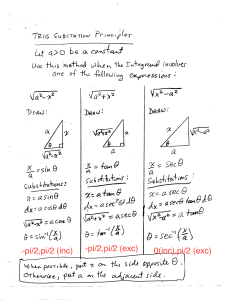 TRIG SUBSTATION Principles
Let a>0 be a constant
Use this method when the Integrand involves
one of the following expressions:
√a²-x²
√a²+x²
√x²-a²
DRAW:
DRAW:
DRAW:
a
x
θ
√a²-x²
√a²+x²
x
θ
a
x
√x²-a²
θ
a
x/a = sin θ
x/a = tan θ
x/a = sec θ
Substitutions
Substitutions:
Substitutions:
x = a sin θ
x = a tan θ
x = a sec θ
dx = a cos θ dθ
dx = a sec² θ dθ
dx = a sec θ tan θ dθ
√a²-x² = a cos θ
√a²+x² = a sec θ
√x²-a² = a tan θ
θ = sin⁻¹(x/a)
θ = tan⁻¹(x/a)
θ = sec⁻¹(x/a)
-pi/2,pi/2 (inc)
-pi/2,pi/2 (exc)
0(inc),pi/2 (exc)
When possible, put x on the side opposite θ.
Otherwise, put a on the adjacent side.